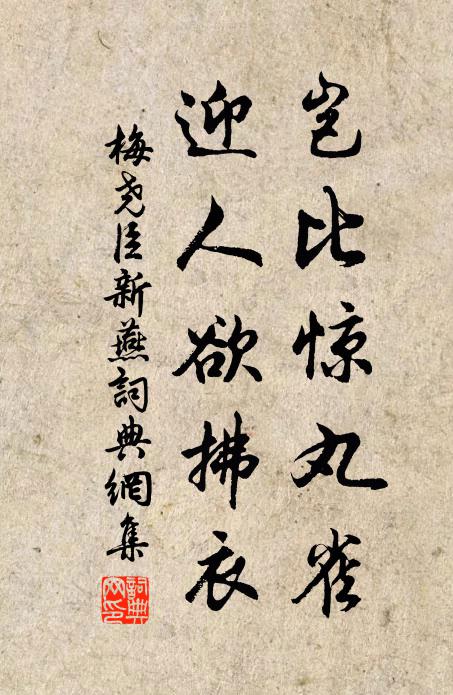 岂比惊丸雀
迎人欲拂衣
梅尧臣新燕詞典網集
詞典网印